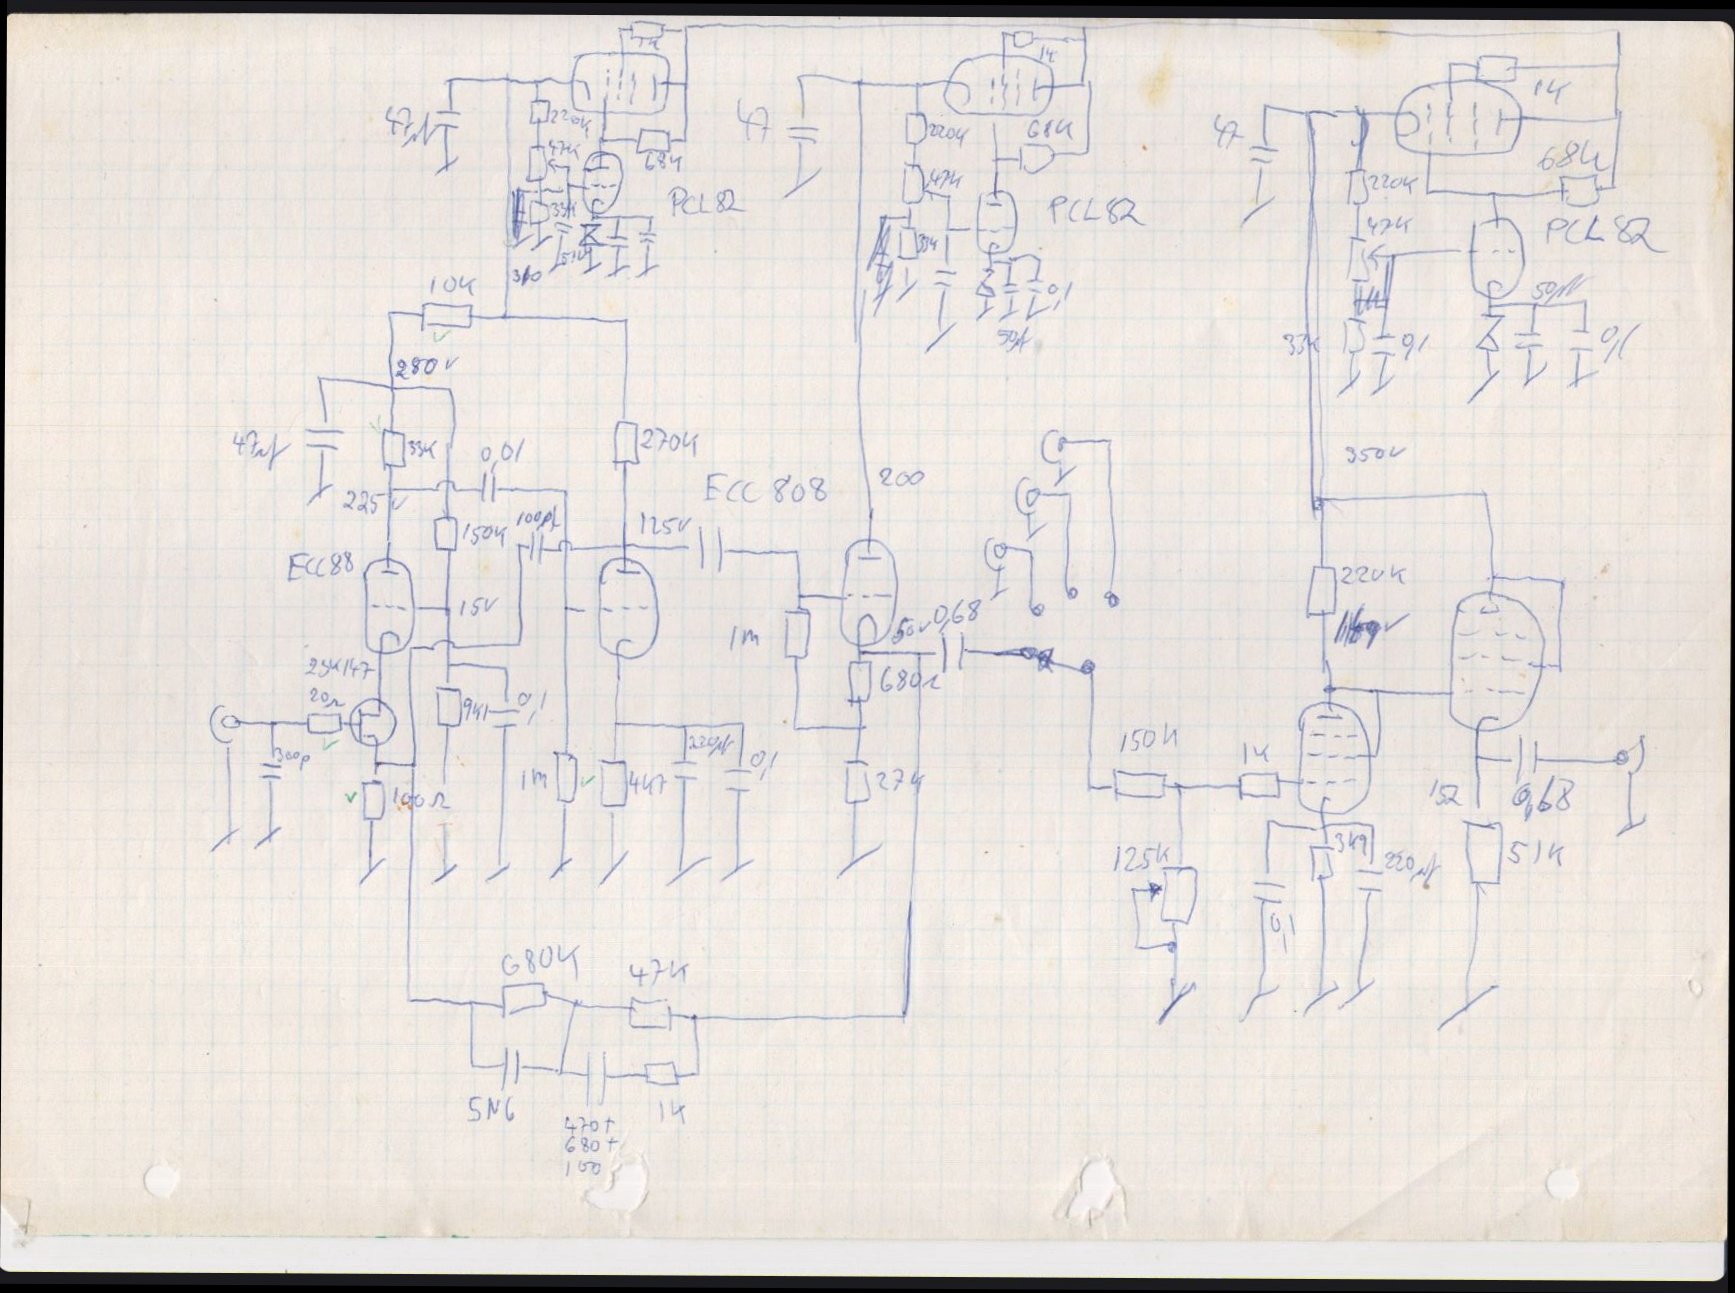 1K
47µf
220K
47K
68K
33K
PCL82
310
47
1K
220K
68K
47K
PCL82
33K
0,1
50µf
47
1K
220K
68K
47K
PCL82
50µf
33K
0,1
0,1
350V
10K
280V
47µf
33K
0,01
270K
225V
150K
100pf
125V
ECC 808
200
ECC88
15V
1M
50V
0,68
680Ω
2SK147
20Ω
300p
100Ω
9K1
0,1
1M
4K7
220µf
0,1
27K
220K
150K
1K
125K
0,1
3K9
220µf
152
0,68
51K
680K
47K
5N6
470+
680+
100
1K